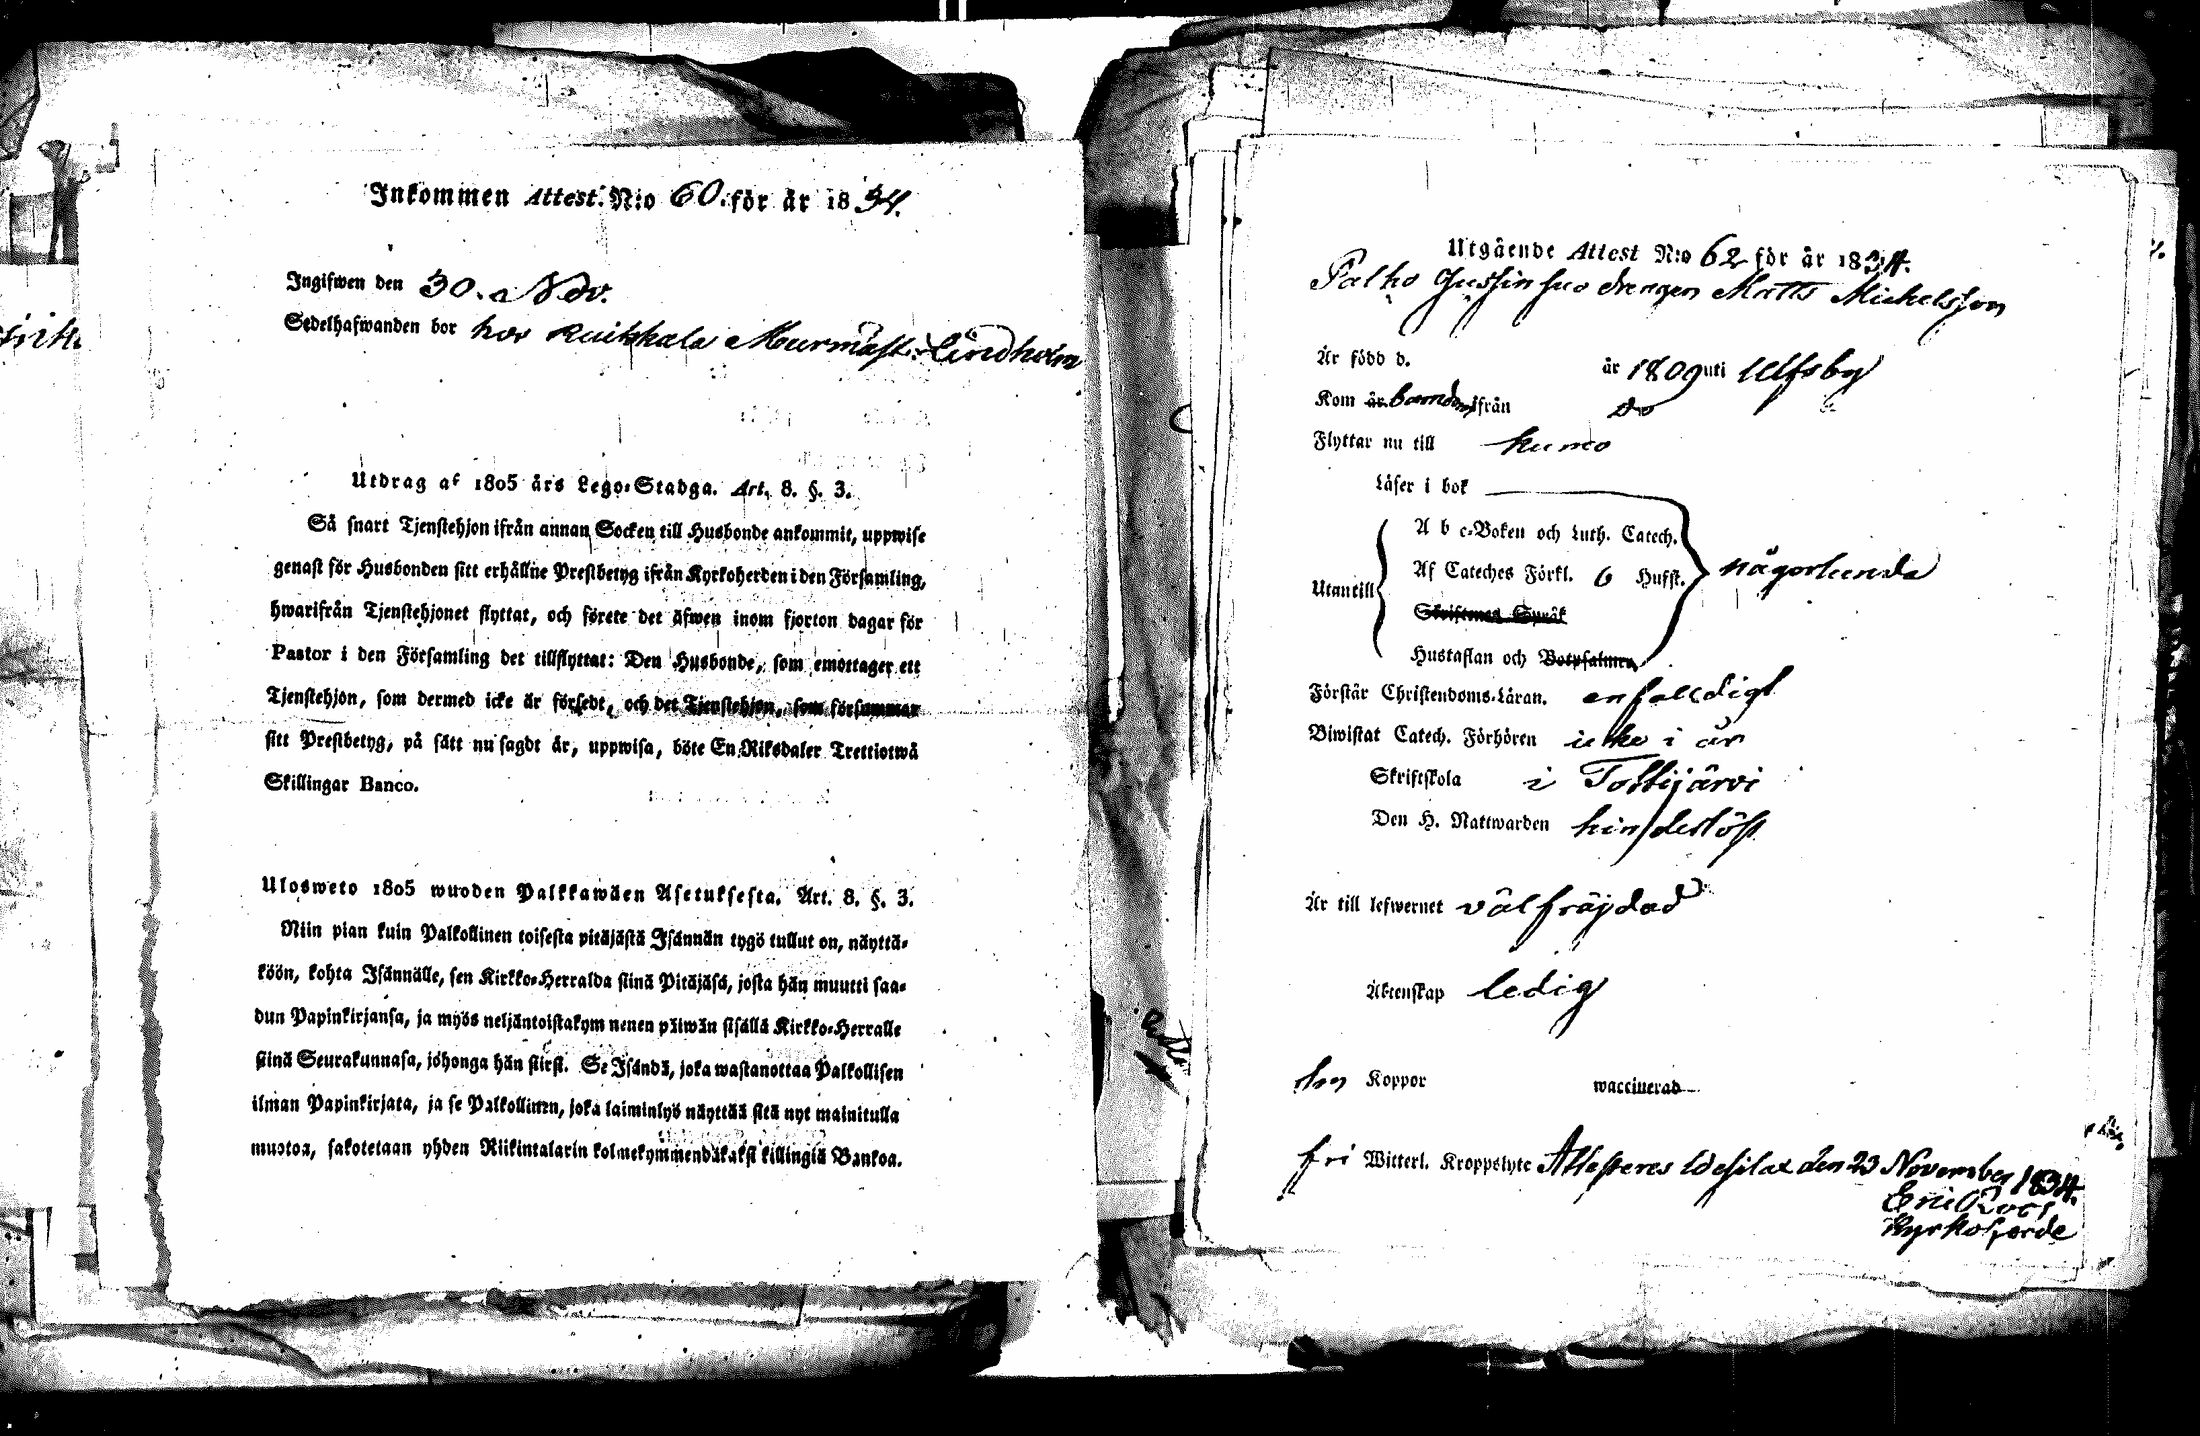 Inkommen Attest. N:o 60. för år 1834.
Ingifwen den 30. Nov.
Sedelhafwanden bor hos Kuikkala Murmäst. Lindholm
Utdrag af 1805 års Lego-Stadga. Art. 8. §. 3.
Så snart Tjenstehjon ifrån annan Socken till Husbonde ankommit, uppwise
genast för Husbonden sitt erhållne Prestbetyg ifrån Kyrkoherden i den Församling,
hwarifrån Tjenstehjonet flyttat, och förete det äfwen inom fjorton dagar för
Pastor i den Församling det tillflyttat: Den Husbonde, som emottager ett
Tjenstehjon, som dermed icke är försedt, och det Tjenstehjon, som försummar
sitt Prestbetyg, på sätt nu sagdt är, uppwisa, böte En Riksdaler Trettiotwå
Skillingar Banco.
Ulosweto 1805 wuoden Palkkawäen Asetuksesta. Art. 8. §. 3.
Niin pian kuin Palkollinen toisesta pitäjästä Isännän tygö tullut on, näyttä-
köön, kohta Isännälle, sen Kirkko-Herralda siinä Pitäjäsä, josta hän muutti saa-
dun Papinkirjansa, ja myös neljäntoistakym nenen päiwän sisällä Kirkko-Herralle
siinä Seurakunnasa, johonga hän siirsi. Se Isändä, joka wastanottaa Palkollisen
ilman Papinkirjata, ja se Palkollinen, joka laiminlyö näyttää sitä nyt mainitulla
muotoa, sakotetaan yhden Riikintalarin kolmekymmendäkaksi killingiä Bankoa.
Utgående Attest N:o 62 för år 1834.
Palho Jussin suo drengen Matts Michelsson
Är född d. år 1809 uti Ulfsby
Kom år barndom ifrån Do
Flyttar nu till Kumo
Läser i bok
A b c-Boken och Luth. Catech.
Af Cateches Förkl. 6 Hufst. någorlunda
Utantill
Skriftenes Språk
Hustaflan och Botpsalmen
Förstår Christendoms-Läran. enfalldigt
Biwistat Catech. Förhören icke i år
Skriftskola i Tottijärvi
Den H. Nattwarden hinderslöst
Är till lefwernet välfräjdad
Äktenskap ledig
Koppor waccinerad
fri Witterl. Kroppslyte Attesteras Wesilax den 23 November 1834.
Eric
Kyrkoherde